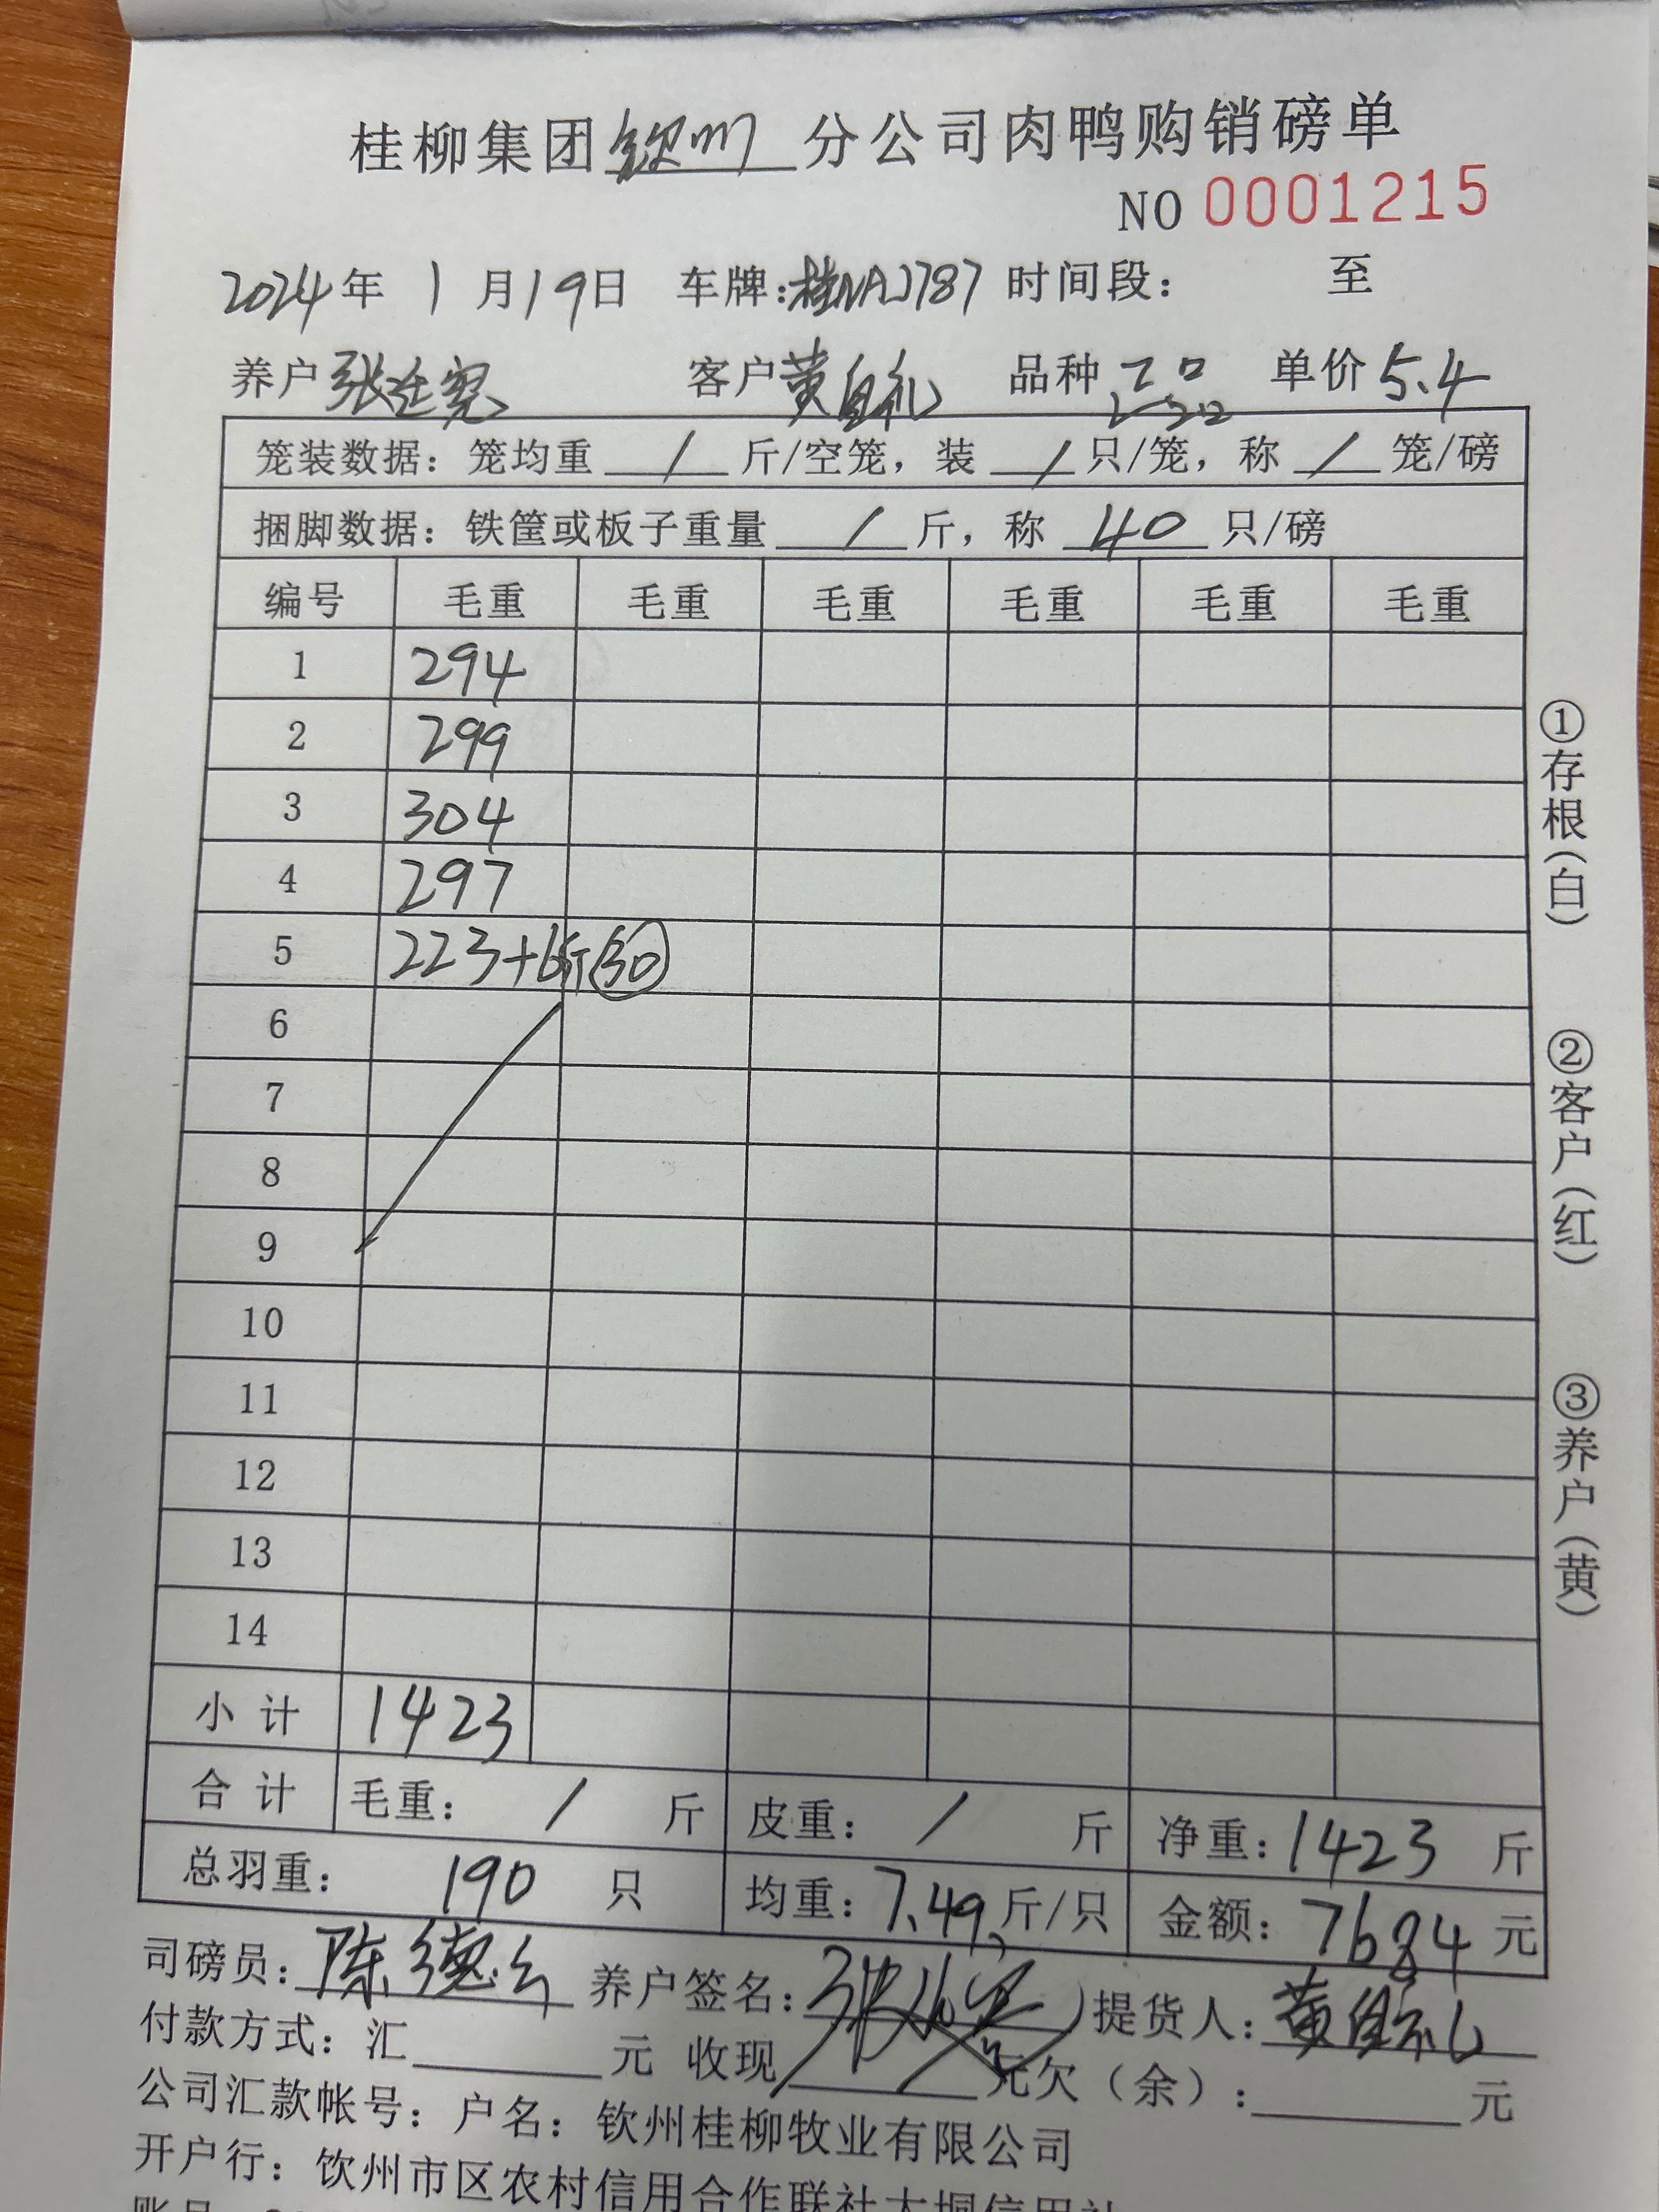 桂柳集团钦州分公司肉鸭购销磅单
NO 0001215
2024年 1 月19日 车牌:桂NAJ787 时间段: 至
养户张 客户黄自礼 品种 单价5.4
笼装数据: 笼均重 / 斤/空笼, 装 / 只/笼, 称 / 笼/磅
捆脚数据: 铁筐或板子重量 / 斤, 称 40 只/磅
编号 毛重 毛重 毛重 毛重 毛重 毛重
1 294
2 299
3 304
4 297
5 223+6斤 30
6
7
8
9
10
11
12
13
14
小计 1423
合计 毛重: / 斤 皮重: / 斤 净重: 1423 斤
总羽重: 190 只 均重: 7.49 斤/只 金额: 7684 元
司磅员: 陈德 养户签名: 张 提货人: 黄自礼
付款方式: 汇 元 收现 元欠(余): 元
公司汇款帐号: 户名: 钦州桂柳牧业有限公司
开户行: 钦州市区农村信用合作联社大垌信用社
①存根(白)
②客户(红)
③养户(黄)